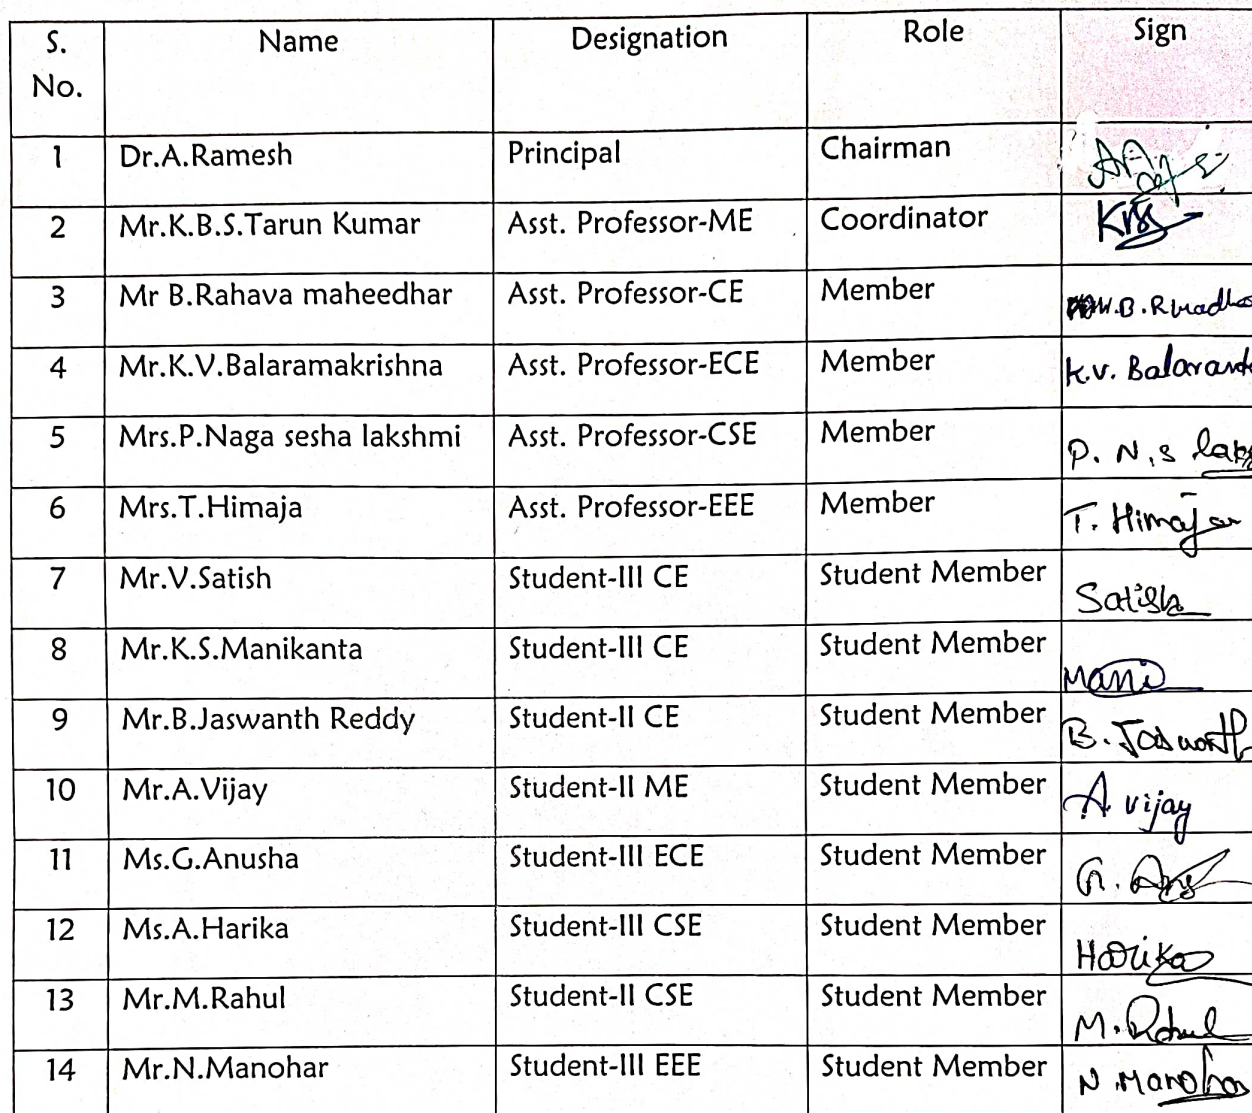 S. No. Name Designation Role Sign
1 Dr.A.Ramesh Principal Chairman
2 Mr.K.B.S.Tarun Kumar Asst. Professor-ME Coordinator
3 Mr B.Rahava maheedhar Asst. Professor-CE Member
4 Mr.K.V.Balaramakrishna Asst. Professor-ECE Member K.V.
5 Mrs.P.Naga sesha lakshmi Asst. Professor-CSE Member P. N.S
6 Mrs.T.Himaja Asst. Professor-EEE Member T. Himaja
7 Mr.V.Satish Student-III CE Student Member Satish
8 Mr.K.S.Manikanta Student-III CE Student Member Mani
9 Mr.B.Jaswanth Reddy Student-II CE Student Member B. Jaswanth
10 Mr.A.Vijay Student-II ME Student Member A vijay
11 Ms.G.Anusha Student-III ECE Student Member G.
12 Ms.A.Harika Student-III CSE Student Member Harika
13 Mr.M.Rahul Student-II CSE Student Member M. Rahul
14 Mr.N.Manohar Student-III EEE Student Member N. Manohar